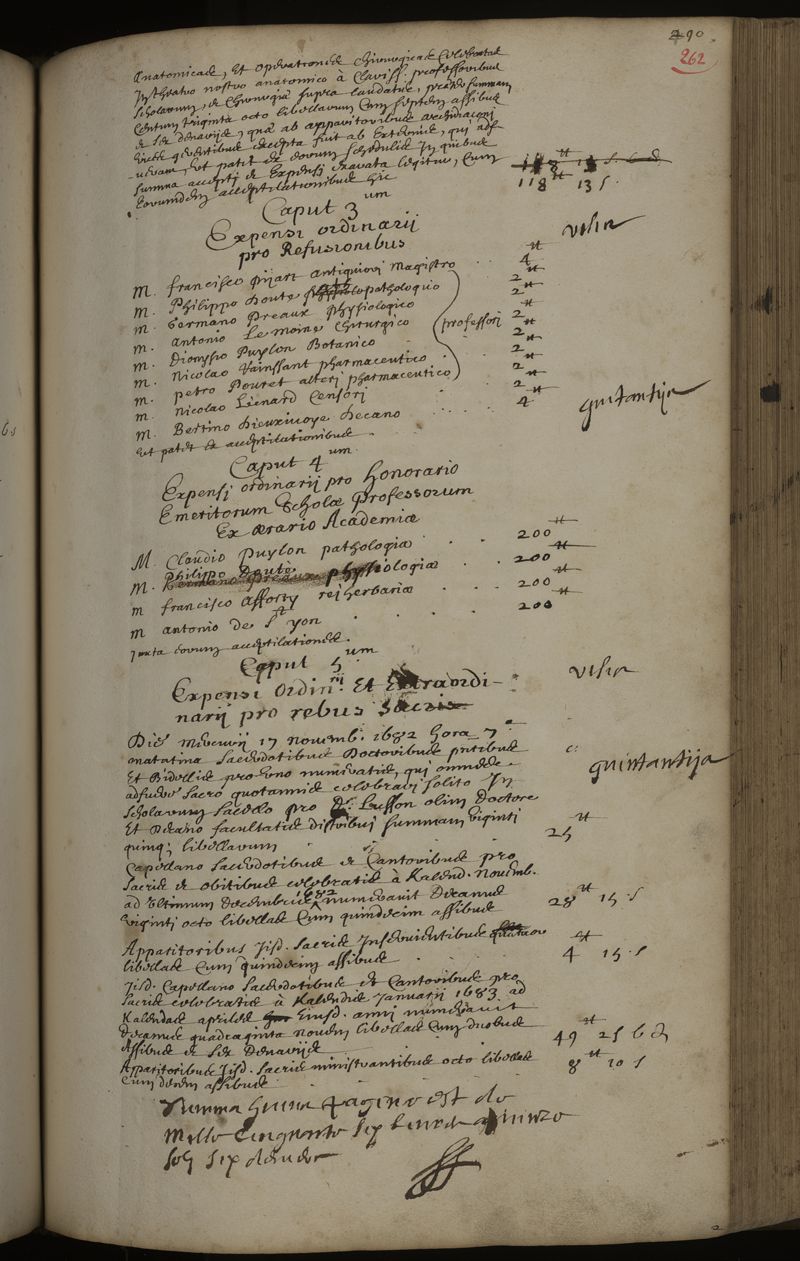 490
262
Anatomicae, Et operationes chirurgicae Celebratae
In theatro nostro anatomico à Clariss. professoribus
scholarum, de Chirurgia supra laudatur, praeter summam
Centum triginta octo libellarum Cum septem assibus
& sex denariis, quae ab apparitoribus
accepta fuit ab Externis, qui
ut patet ex eorum schedulis In quibus
summa accepti & Expensi exarata legitur, Cum
Eorumdem acceptilationibus hic
118 ₶ 13 s.
Caput 3um
Expensi ordinarij
pro Refusionibus
visa
M. francisco pijart antiquiori magistro . . 4 ₶
M. Philippo Doute pathologico 2 ₶
M. Germano Preaux physiologico 2 ₶
M. Antonio Le moine Chirurgico (professori 2 ₶
M. Dionysio Puylon Botanico 2 ₶
M. Nicolao Vainssant pharmaceutico . 2 ₶
M. petro Douret alteri pharmaceutico 2 ₶
M. Nicolao Lienard Censori 2 ₶
M. Bertino Dieuxivoye Decano . . . 4 ₶
ut patet ex acceptilationibus .
quitantija
Caput 4um
Expensi ordinarij pro honorario
Emeritorum Scholae professorum
Ex aerario Academiae
M. Claudio Puylon pathologiae . . 200 ₶
Philippo Doutè
M. Germano Preaux physiologiae . 200 ₶
M francisco afforty rei herbariae . . 200 ₶
M antonio de St yon . . . . 200 ₶
Juxta eorum acceptilationes.
Caput 5um
Expensi Ordinrij Et Extraordi-
narij pro rebus Sacris
visa
Die Mercurij 17 novemb. 1682 hora 7
matutina sacerdotibus Doctoribus pntibus
Et Bidellis pro more numeratis, qui omnes
adfuere sacro quotannis celebrari solito In
scholarum sacello pro Dr. Lusson olim doctore
Et Decano facultatis distribui summam viginti
quinq; libellarum . . . 25 ₶
quintantija
Capellano sacerdotibus & Cantoribus pro
sacris & obitibus celebratis à Kalend. novemb.
ad ultimum decembris 1682 numeravit Decanus
viginti octo libellas Cum quindecim assibus 28 ₶ 15 s
Apparitoribus Iisd. sacris Inservientibus quatuor
libellas Cum quindecim assibus . . . 4 ₶ 15 s
Iisd. Capellano sacerdotibus & Cantoribus pro
sacris celebratis à Kalendis Januarij 1683 ad
Kalendas apriles Eiusd. anni numeravit
Decanus quadraginta novem libellas Cum duobus
assibus & sex denarijs . . . 49 ₶ 2 s 6 d
Apparitoribus Iisd. sacris ministrantibus octo libellas
Cum decem assibus . . . 8 ₶ 10 s
Summa huius paginae est de
Mille Cinquante six livres quinze
sols six deniers